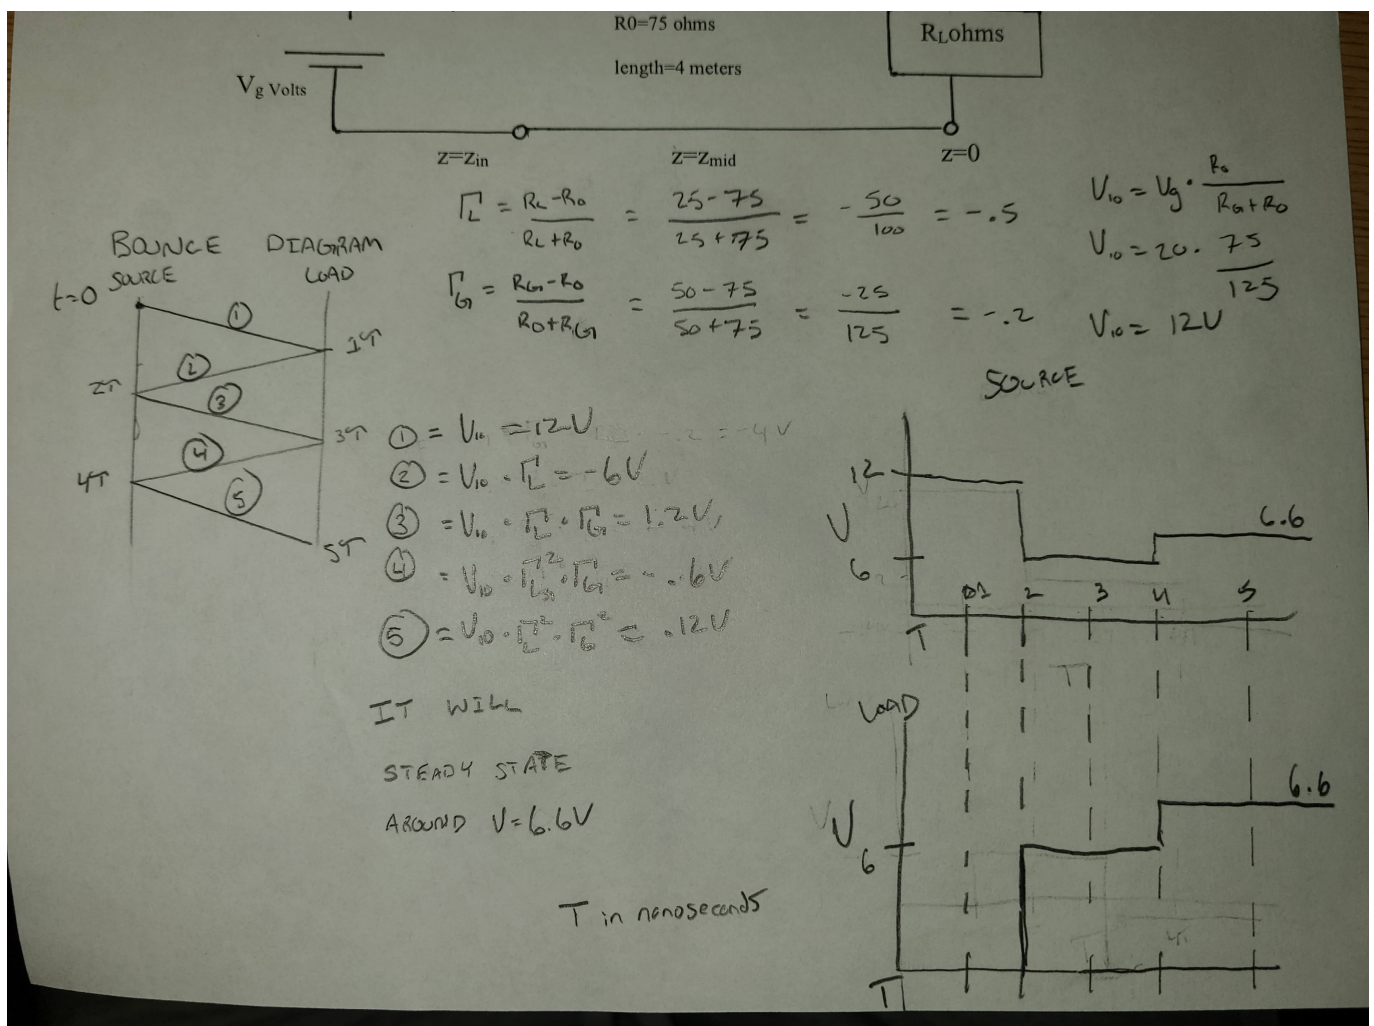 R0=75 ohms
RLohms
length=4 meters
Vg Volts
z=zin
z=zmid
z=0
ΓL = RL-R0 / RL+R0 = 25-75 / 25+75 = -50/100 = -.5
ΓG = RG-R0 / R0+RG = 50-75 / 50+75 = -25/125 = -.2
V10 = Vg · R0 / RG+R0
V10 = 20 · 75/125
V10 = 12V
BOUNCE DIAGRAM
SOURCE LOAD
t=0
1
1T
2
2T
3
3T
4
4T
5
5T
① = V10 = 12V
② = V10 · ΓL = -6V
③ = V10 · ΓL · ΓG = 1.2V
④ = V10 · ΓL² · ΓG = -.6V
⑤ = V10 · ΓL² · ΓG² = .12V
IT WILL
STEADY STATE
AROUND V=6.6V
T in nanoseconds
SOURCE
12
V
6
6.6
1 2 3 4 5
T
LOAD
V
6
6.6
T